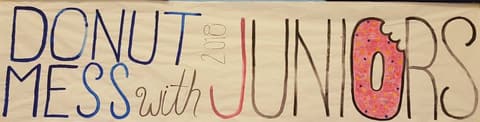 DONUT
MESS with 2018 JUNIORS